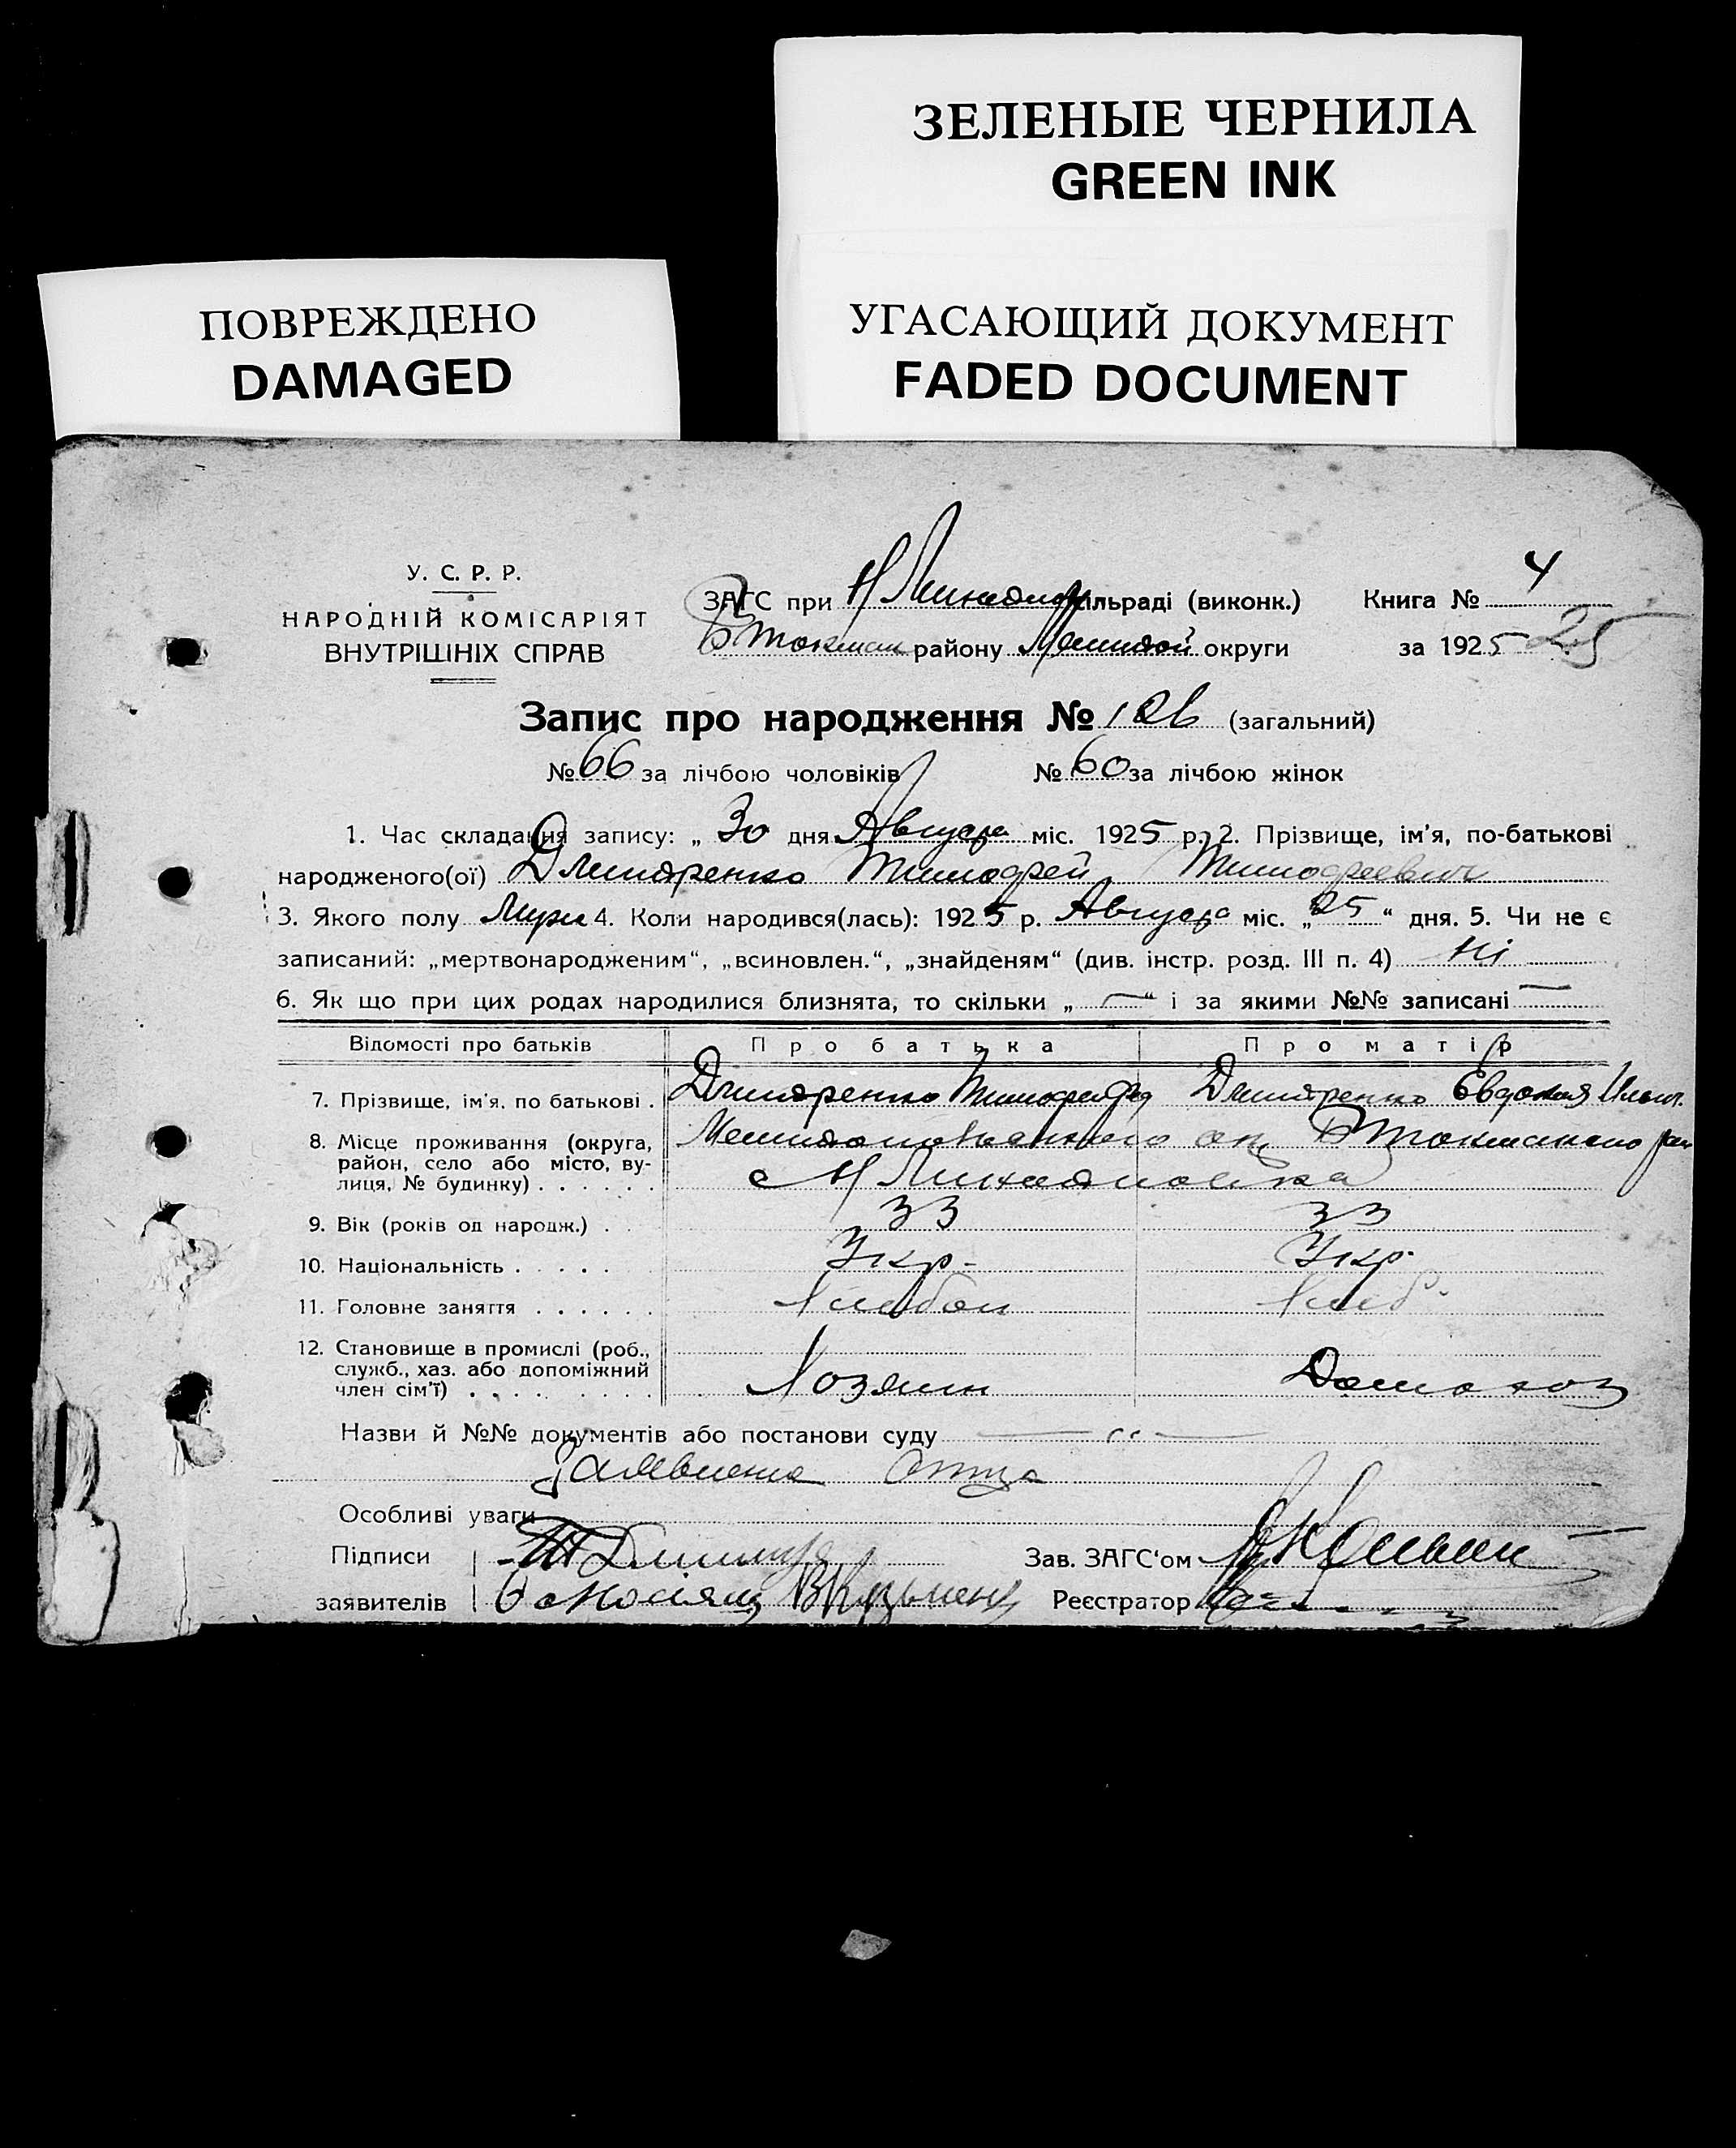 ЗЕЛЕНЫЕ ЧЕРНИЛА
GREEN INK
УГАСАЮЩИЙ ДОКУМЕНТ
FADED DOCUMENT
ПОВРЕЖДЕНО
DAMAGED
У. С. Р. Р.
НАРОДНІЙ КОМІСАРІЯТ
ВНУТРІШНІХ СПРАВ
ЗАГС при Н ільраді (виконк.) Книга № 4
Б Токмак району округи за 1925 25
Запис про народження № 126 (загальний)
№ 66 за лічбою чоловіків № 60 за лічбою жінок
1. Час складання запису: „ 30 дня Августа міс. 1925 р. 2. Прізвище, ім'я, по-батькові
народженого(ої) Дмитренко Тимофей Тимофеевич
3. Якого полу Муж 4. Коли народився(лась): 1925 р. Августа міс. „ 25 “ дня. 5. Чи не є
записаний: „мертвонародженим“, „всиновлен.“, „знайденям“ (див. інстр. розд. III п. 4) Ні
6. Як що при цих родах народилися близнята, то скільки „ — “ і за якими №№ записані —
Відомості про батьків Про батька Про матір
7. Прізвище, ім'я, по батькові . Дмитренко Тимофей Дмитренко Евдокия
8. Місце проживання (округа, Мелитопольского ок. Б Токмакского
район, село або місто, ву-
лиця, № будинку) . . . . . . с Н
9. Вік (років од народж.) . 33 33
10. Національність . . . . . Укр. Укр.
11. Головне заняття . . . . . . Хлебоп Хлеб.
12. Становище в промислі (роб.,
служб., хаз. або допоміжний
член сім'ї) . . . . . . . . . Хозяин Домохоз
Назви й №№ документів або постанови суду
Заявление Отца
Особливі уваги
Підписи Зав. ЗАГС'ом
заявителів Реєстратор